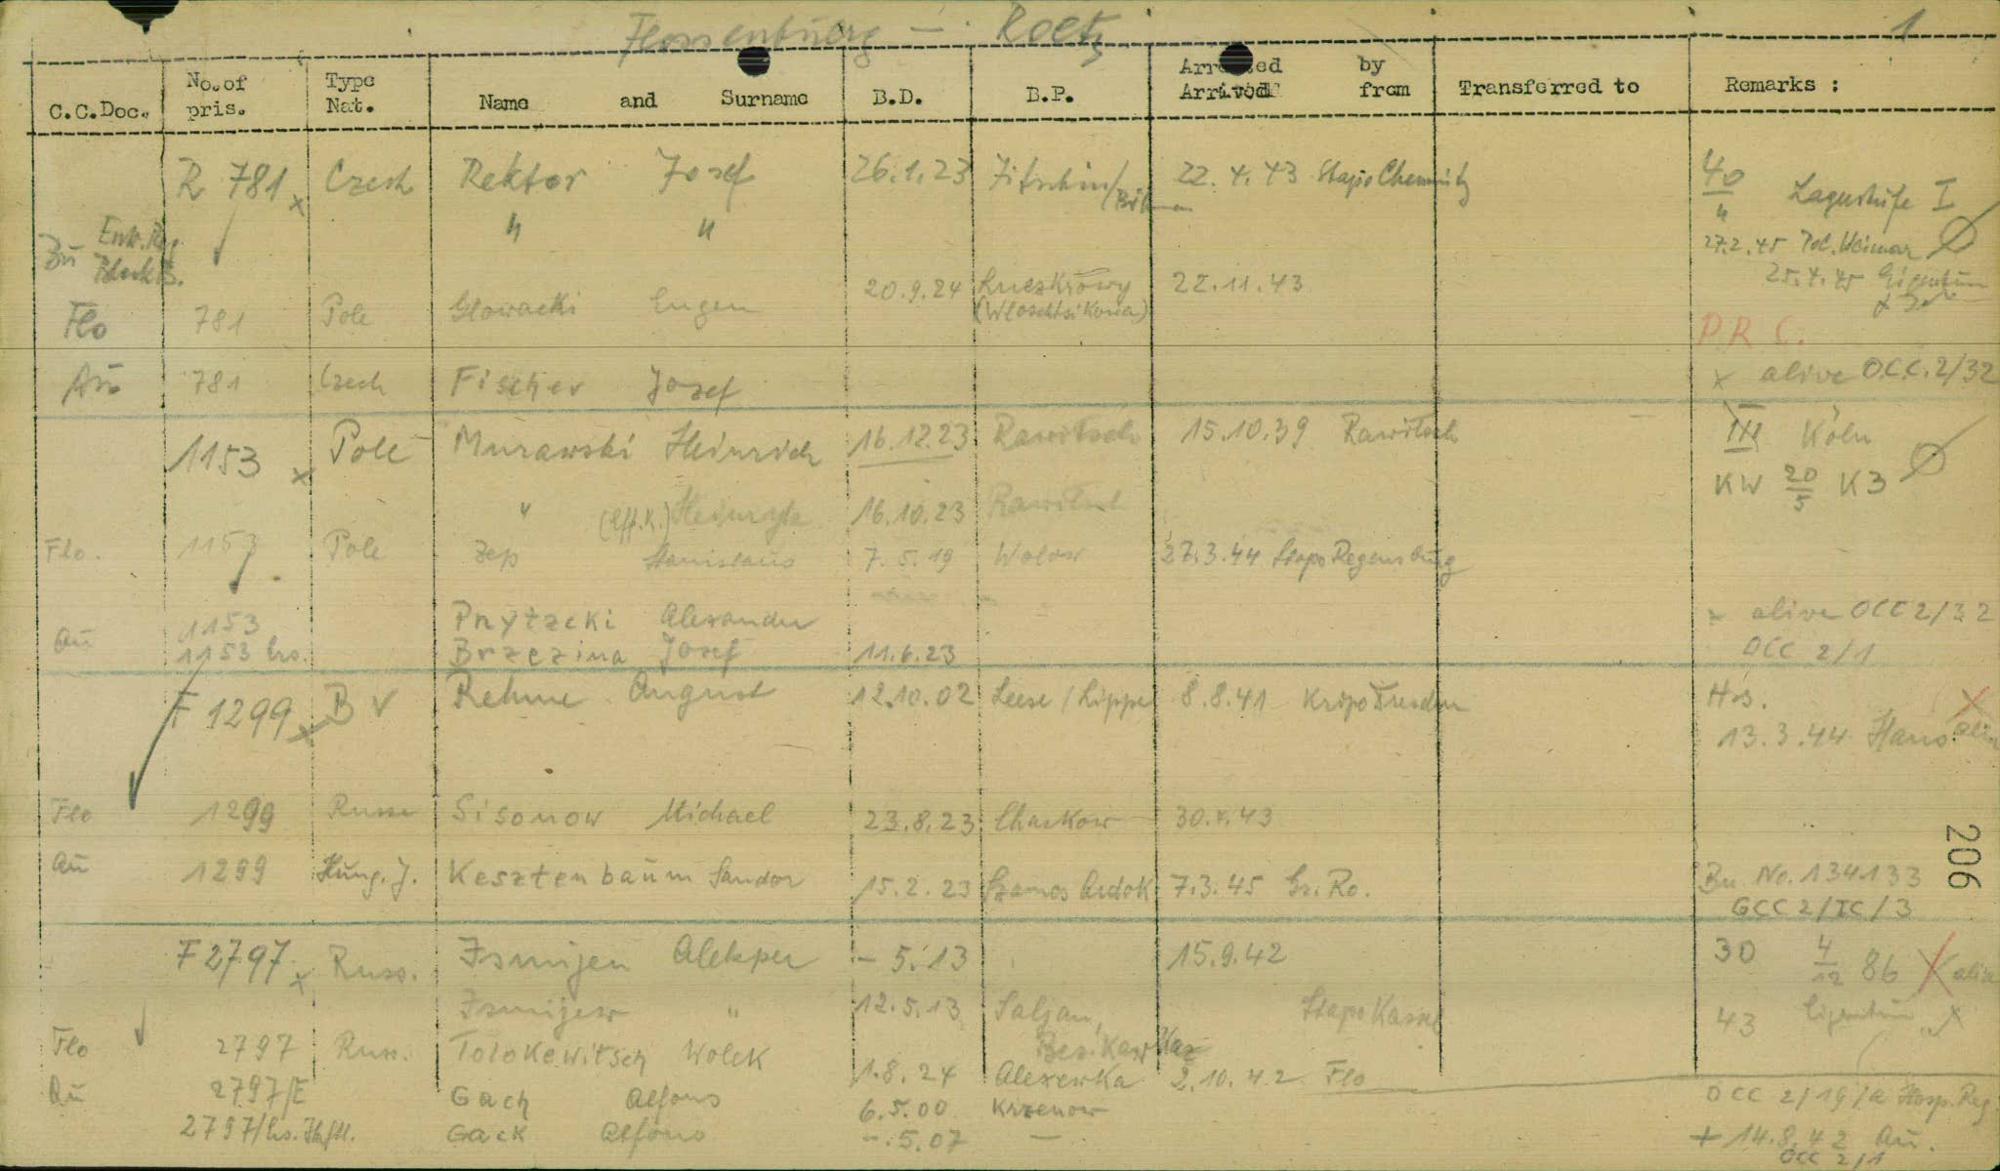 Flossenbürg — Roetz 1
C.C.Doc. No.of pris. Type Nat. Name and Surname B.D. B.P. Arrested by Arrived from Transferred to Remarks :
R 781 x Czech Rektor Josef 26.1.23 Jitschin/Böhmen 22.4.43 Stapo Chemnitz 40/4 Lagerstufe I
" " 27.2.45 Pol. Weimar
25.4.45 Eigentum
Flo 781 Pole Glowacki Eugen 20.9.24 22.11.43
P.R.C.
Au 781 Czech Fischer Josef x alive OCC.2/32
1153 x Pole Murawski Heinrich 16.12.23 Rawitsch 15.10.39 Rawitsch III Köln
KW 20/5 K3
" (Eff.K.) 16.10.23 Rawitsch
Flo. 1153 Pole Zep Stanislaus 7.5.19 Wolow 27.3.44 Stapo Regensburg
Au 1153 Alexander x alive OCC 2/32
1153 Brzezina Josef 11.6.23 OCC 2/1
F 1299 x BV Rehme August 12.10.02 Leese/Lippe 8.8.41 Kripo Dresden
13.3.44 alive
Flo 1299 Russe Sisonow Michael 23.8.23 Charkow 30.4.43
Au 1299 Hung.J. Kesztenbaum Sandor 15.2.23 Szamos 7.3.45 Gr.Ro. Bu No.134133
GCC 2/IC/3
206
F 2797 x Russ. Ismijen Alekper –5.13 15.9.42 30 4/12 86 X alive
Ismijew " 12.5.13 Saljan, Stapo Kassel 43 Eigentum
Flo 2797 Russ. Tolokewitsch Wolek 1.8.24 Alexewka 2.10.42 Flo
Au 2797/E Gach Alfons 6.5.00 Krzenow OCC 2/19/a Hosp.Reg.
2797/ Gack Alfons –.5.07 — + 14.8.42 Au.
OCC 2/1